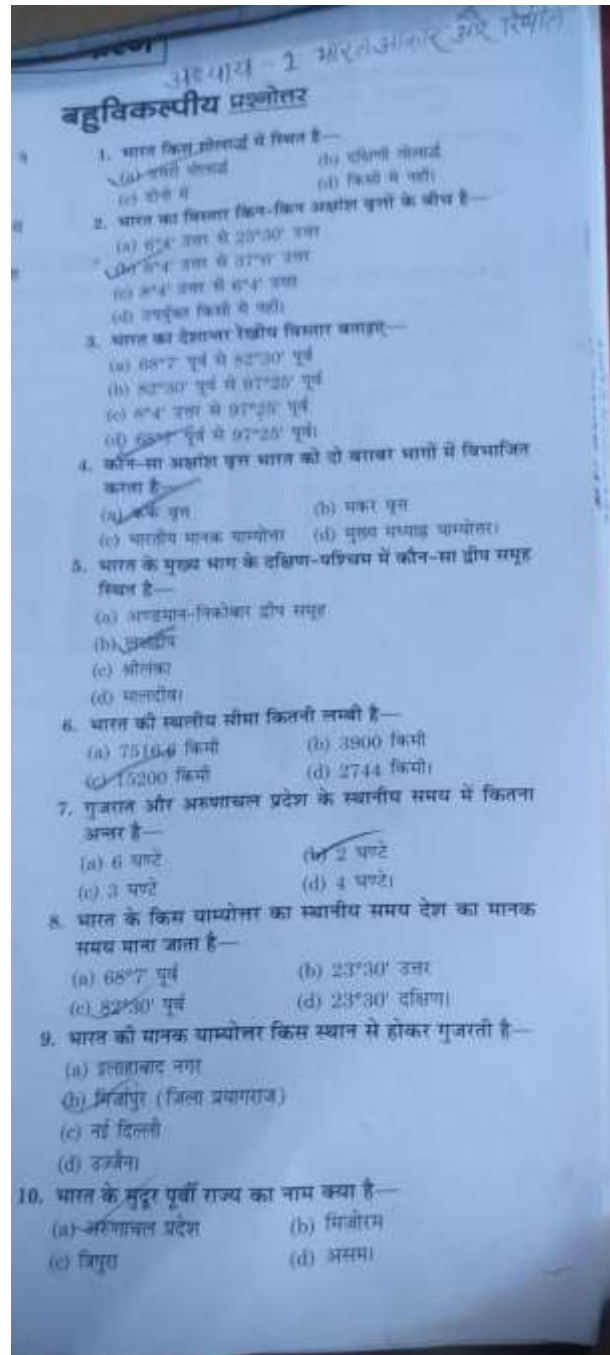 अध्याय - 1 भारत आकार और स्थिति
बहुविकल्पीय प्रश्नोत्तर
1. भारत किस गोलार्द्ध में स्थित है—
(a) उत्तरी गोलार्द्ध (b) दक्षिणी गोलार्द्ध
(c) दोनों में (d) किसी में नहीं।
2. भारत का विस्तार किन-किन अक्षांश वृत्तों के बीच है—
(a) 6°4' उत्तर से 23°30' उत्तर
(b) 8°4' उत्तर से 37°6' उत्तर
(c) 8°4' उत्तर से 6°4' उत्तर
(d) उपर्युक्त किसी में नहीं।
3. भारत का देशान्तर रेखीय विस्तार बताइए—
(a) 68°7' पूर्व से 82°30' पूर्व
(b) 82°30' पूर्व से 97°25' पूर्व
(c) 8°4' उत्तर से 97°25' पूर्व
(d) 68°7' पूर्व से 97°25' पूर्व।
4. कौन-सा अक्षांश वृत्त भारत को दो बराबर भागों में विभाजित
करता है—
(a) कर्क वृत्त (b) मकर वृत्त
(c) भारतीय मानक याम्योत्तर (d) मुख्य मध्याह्न याम्योत्तर।
5. भारत के मुख्य भाग के दक्षिण-पश्चिम में कौन-सा द्वीप समूह
स्थित है—
(a) अण्डमान-निकोबार द्वीप समूह
(b) लक्षद्वीप
(c) श्रीलंका
(d) मालदीव।
6. भारत की स्थलीय सीमा कितनी लम्बी है—
(a) 7516.6 किमी (b) 3900 किमी
(c) 15200 किमी (d) 2744 किमी।
7. गुजरात और अरुणाचल प्रदेश के स्थानीय समय में कितना
अन्तर है—
(a) 6 घण्टे (b) 2 घण्टे
(c) 3 घण्टे (d) 4 घण्टे।
8. भारत के किस याम्योत्तर का स्थानीय समय देश का मानक
समय माना जाता है—
(a) 68°7' पूर्व (b) 23°30' उत्तर
(c) 82°30' पूर्व (d) 23°30' दक्षिण।
9. भारत की मानक याम्योत्तर किस स्थान से होकर गुजरती है—
(a) इलाहाबाद नगर
(b) मिर्जापुर (जिला प्रयागराज)
(c) नई दिल्ली
(d) उज्जैन।
10. भारत के सुदूर पूर्वी राज्य का नाम क्या है—
(a) अरुणाचल प्रदेश (b) मिजोरम
(c) त्रिपुरा (d) असम।